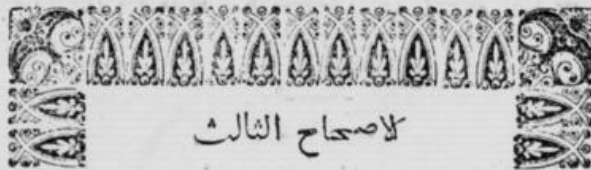 كلاصحاح الثالث